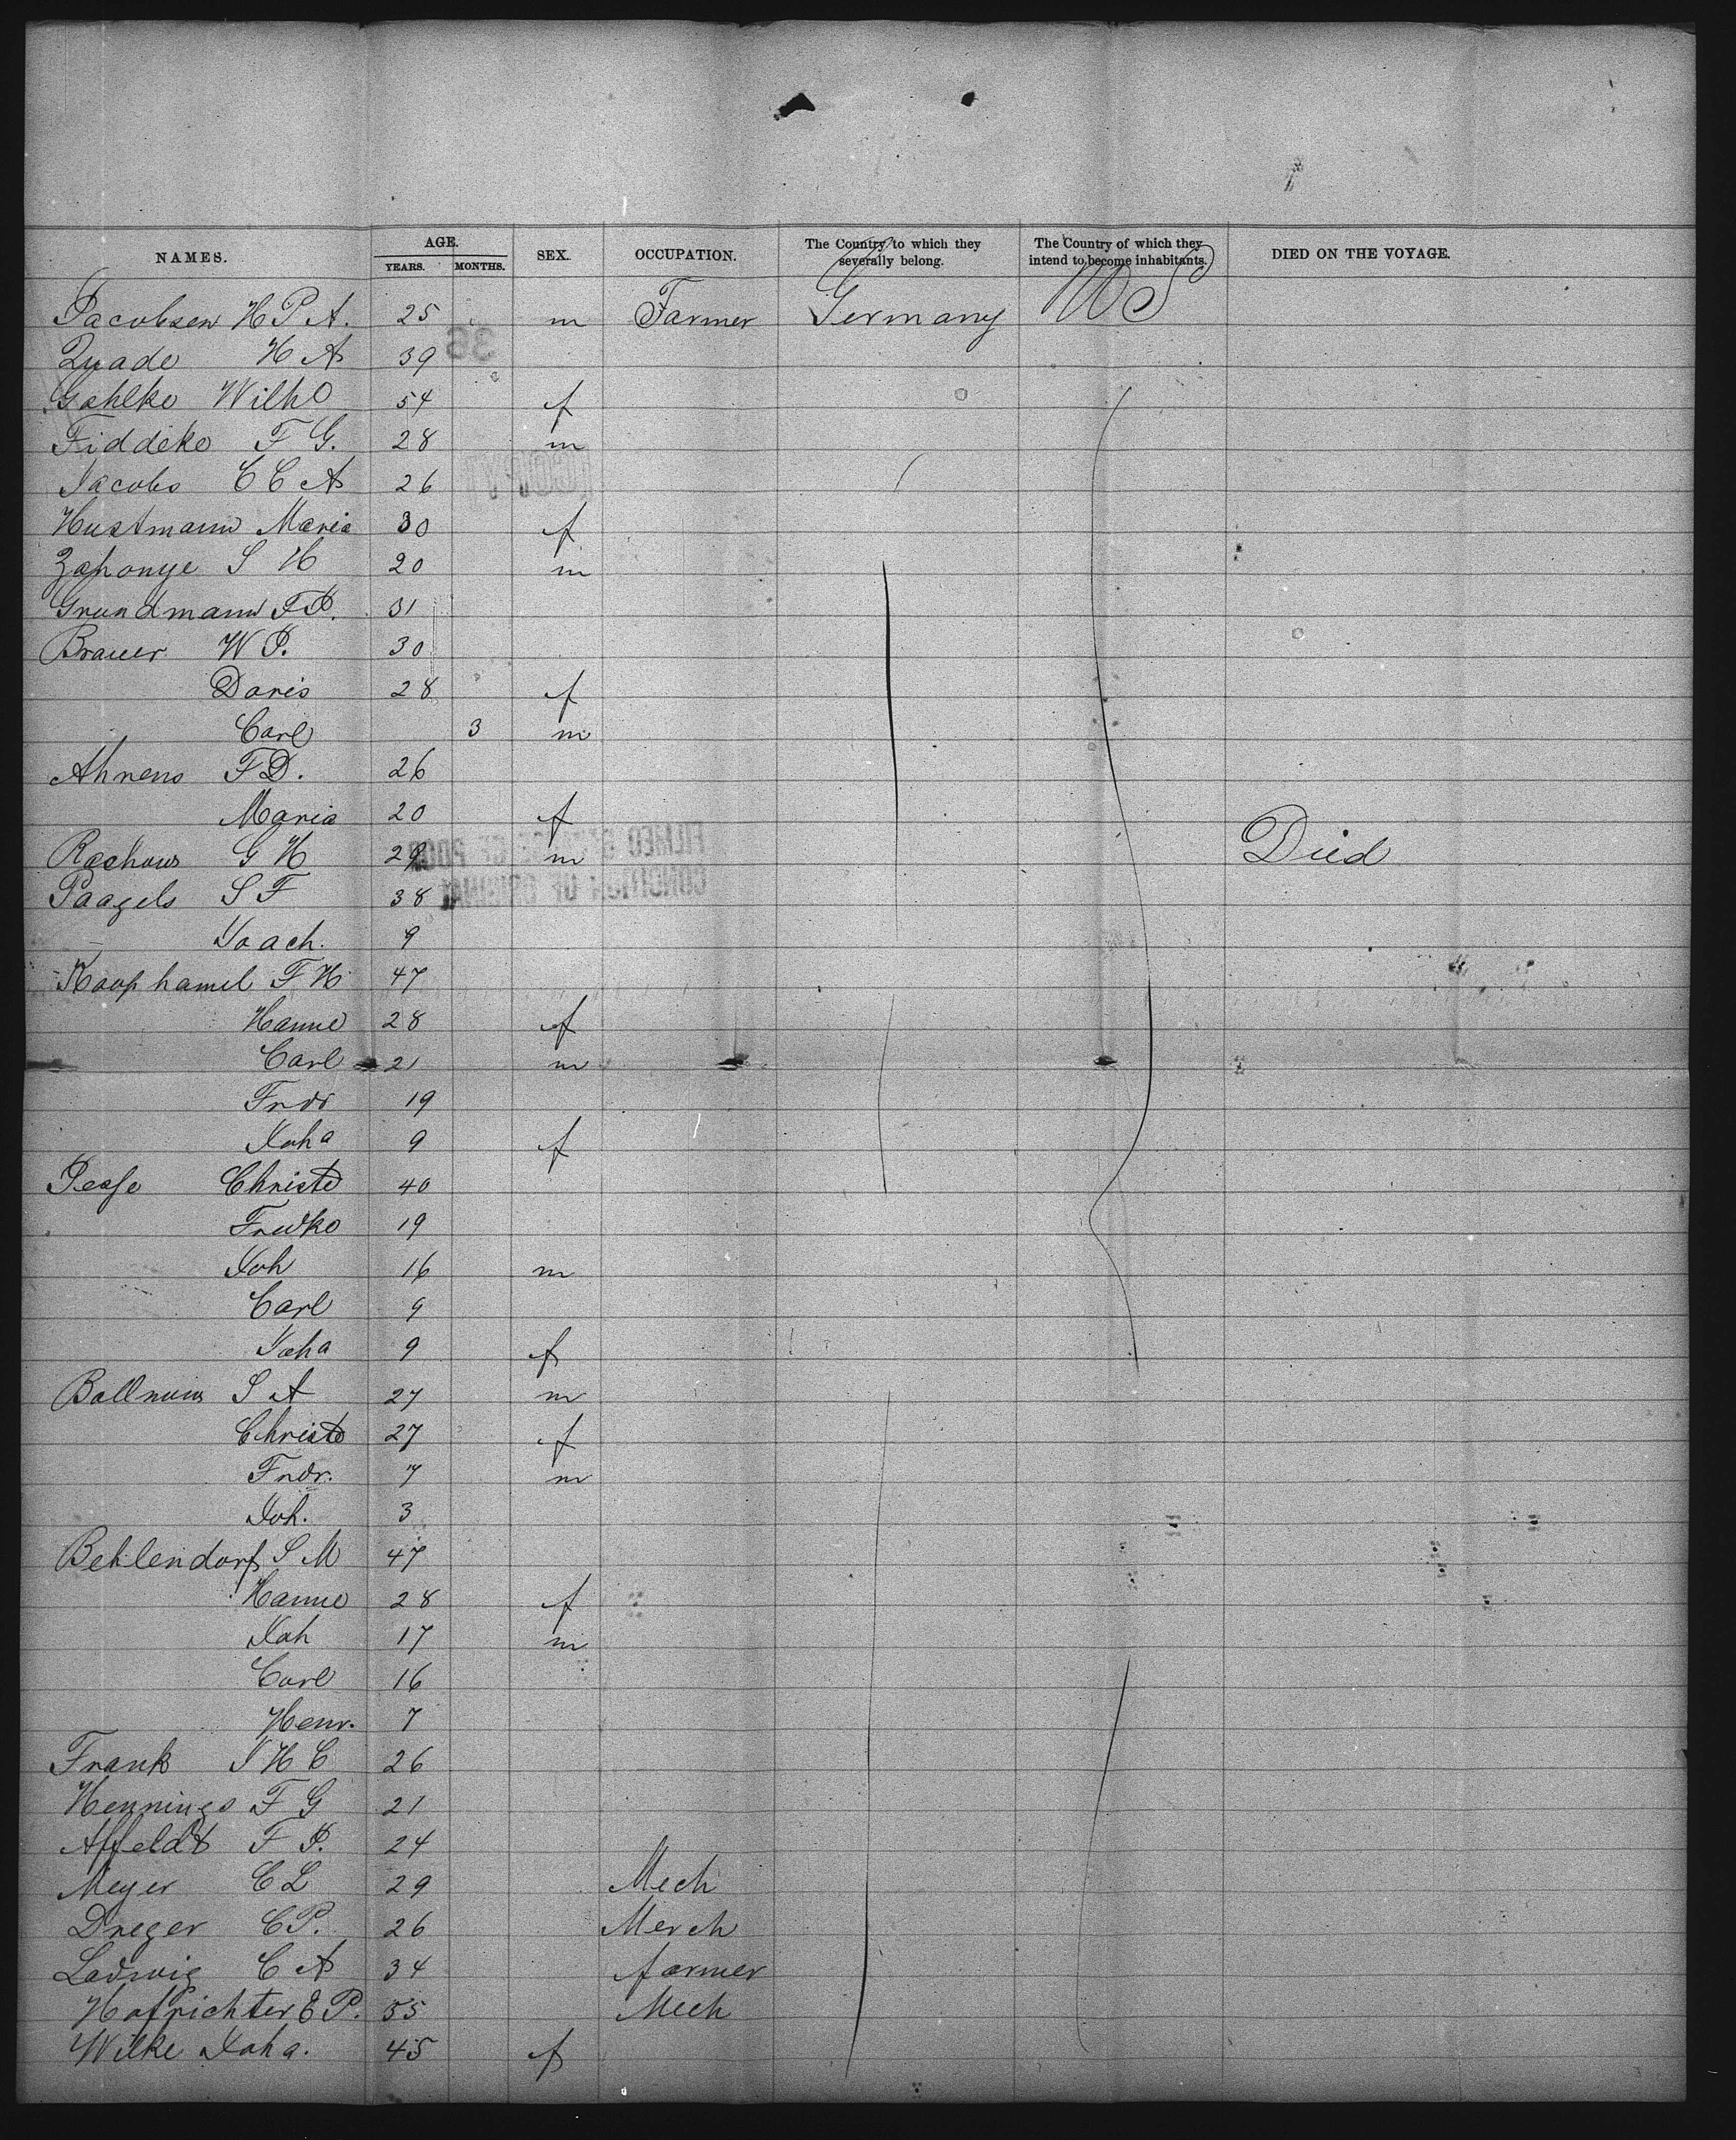 NAMES. AGE. YEARS. MONTHS. SEX. OCCUPATION. The Country to which they severally belong. The Country of which they intend to become inhabitants. DIED ON THE VOYAGE.
Jacobsen H P A. 25 m Farmer Germany U S
Quade H A 39
Gahlke Wilhe 54 f
Fiddeke F G. 28 m
Jacobs C C A 26
Hustmann Maria 30 f
S H 20 m
Grundmann F P. 31
Brauer W P. 30
Doris 28 f
Carl 3 m
Ahrens F D. 26
Maria 20 f
Rachow G H 29 m Died
Paagels S F 38
Joach. 9
Koophamel F H 47
Hanne 28 f
Carl 21 m
Frdr 19
Joha 9 f
Christe 40
19
Joh 16 m
Carl 9
Joha 9 f
S A 27 m
Christe 27 f
Frdr. 7 m
Joh. 3
Behlendorf S M 47
Hanne 28 f
Joh 17 m
Carl 16
Henr. 7
Frank J H C 26
Hennings F G 21
Affeldt F P. 24
Meyer C L 29 Mech
Dreger C P. 26 Merch
Ladwig C A 34 farmer
Hofrichter E P. 55 Mech
Wilke Joha. 45 f